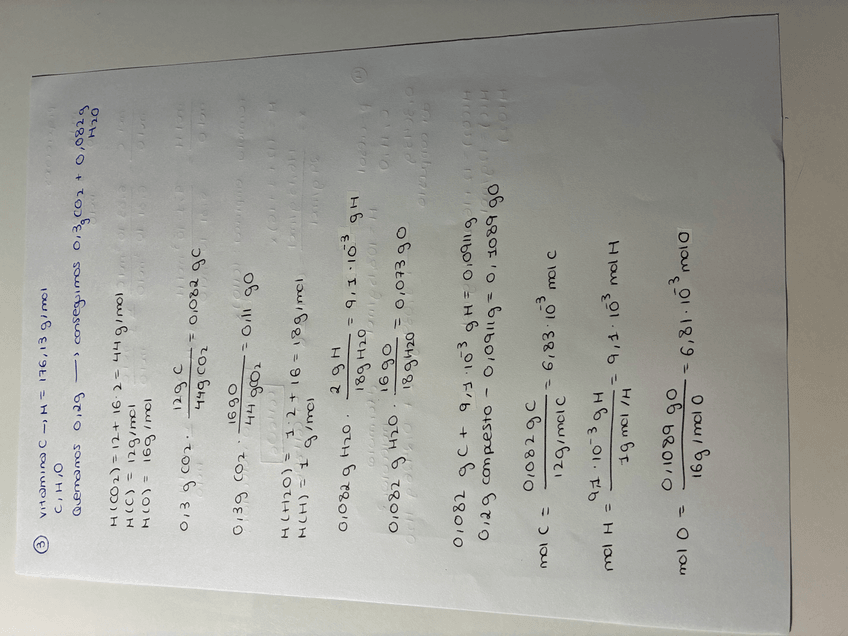 ③ vitamina C → M = 176,13 g/mol
C, H, O
Quemamos 0,2g → conseguimos 0,3g CO2 + 0,082g H2O
M(CO2) = 12 + 16·2 = 44 g/mol
M(C) = 12g/mol
M(O) = 16g/mol
0,3 g CO2 · 12g C / 44g CO2 = 0,082 gC
0,3g CO2 · 16gO / 44 gCO2 = 0,11 gO
M(H2O) = 1·2 + 16 = 18g/mol
M(H) = 1 g/mol
0,082 g H2O · 2 gH / 18g H2O = 9,1·10⁻³ gH
0,082 g H2O · 16gO / 18gH2O = 0,073 gO
0,082 gC + 9,1·10⁻³ gH = 0,0911g
0,2g compuesto - 0,0911g = 0,1089 gO
mol C = 0,082 gC / 12g/mol C = 6,83·10⁻³ mol C
mol H = 9,1·10⁻³ gH / 1g mol/H = 9,1·10⁻³ mol H
mol O = 0,1089 gO / 16g/mol O = 6,81·10⁻³ mol O